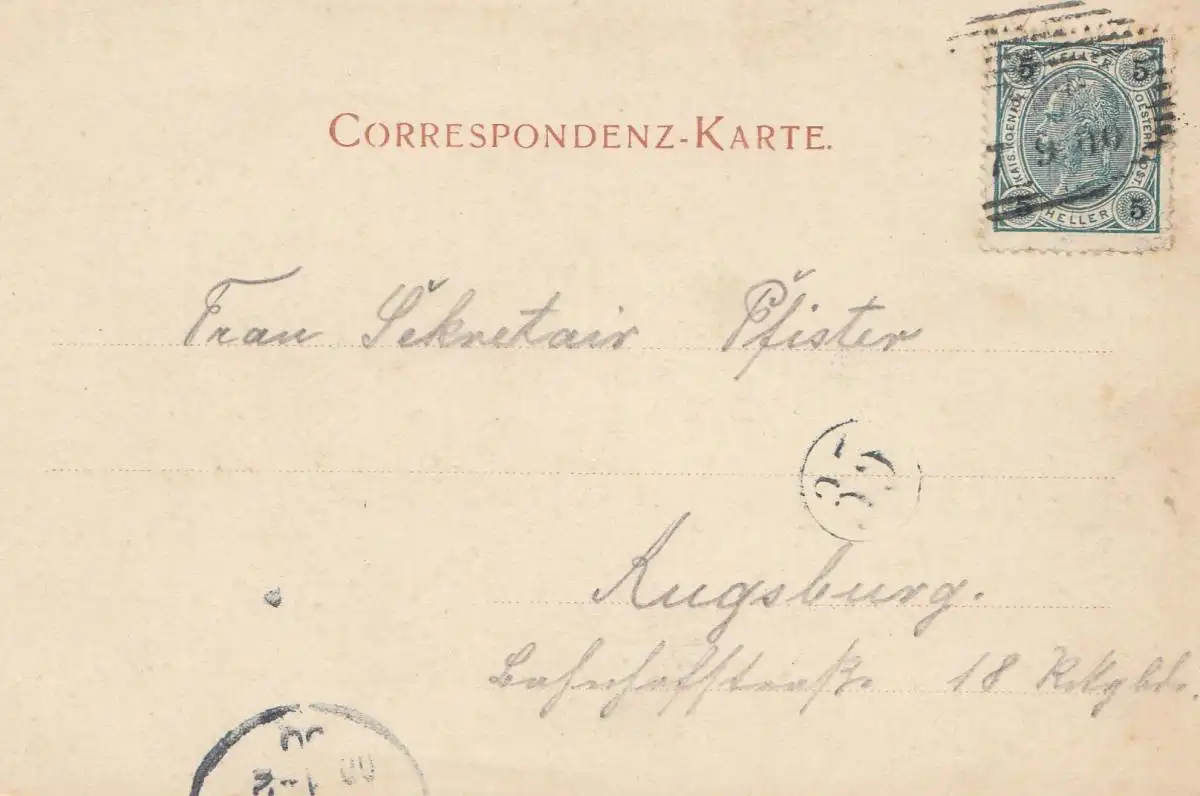 CORRESPONDENZ-KARTE.
5 HELLER 5
KAIS. KOENIGL. OESTERR. POST.
5 HELLER 5
Frau Sekretair Pfister
35
Augsburg.
Bahnhofstraße 18